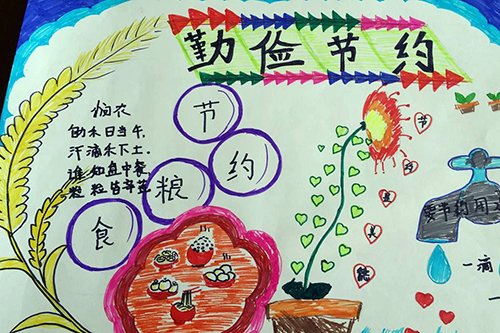 勤俭节约
悯农
锄禾日当午,
汗滴禾下土。
谁知盘中餐,
粒粒皆辛苦
节
约
粮
食
美
德
要节约用
一滴